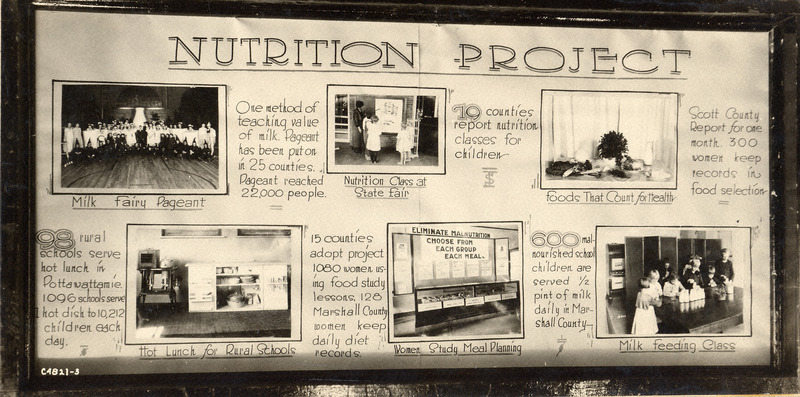 NUTRITION PROJECT
One method of
teaching value
of milk. Pageant
has been put on
in 25 counties.
Pageant reached
22,000 people.
Milk Fairy Pageant
Nutrition Class at
State Fair
19 counties
report nutrition
classes for
children
Foods That Count for Health
Scott County
Report for one
month. 300
women keep
records in
food selection
98 rural
schools serve
hot lunch in
Pottawattamie.
1096 schools serve
hot dish to 10,212
children each
day.
Hot Lunch for Rural Schools
15 counties
adopt project
1080 women us-
ing food study
lessons. 128
Marshall County
women keep
daily diet
records.
ELIMINATE MALNUTRITION
CHOOSE FROM
EACH GROUP
EACH MEAL
Women Study Meal Planning
600 mal-
nourished school
children are
served 1/2
pint of milk
daily in Mar-
shall County
Milk Feeding Class
C4821-3